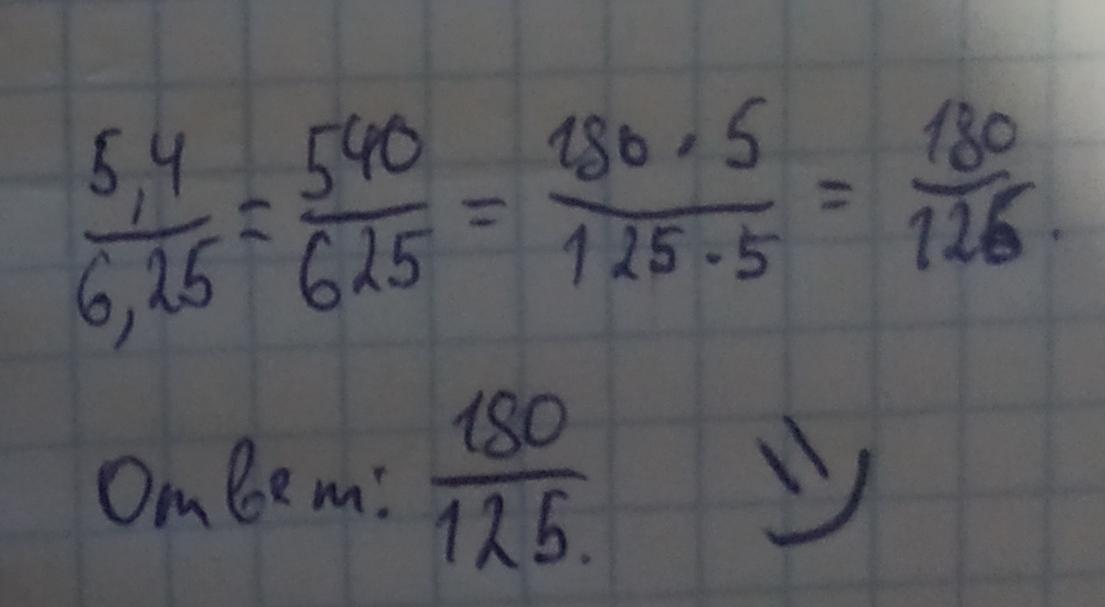 5,4/6,25 = 540/625 = 180·5/125·5 = 180/125.
Ответ: 180/125.